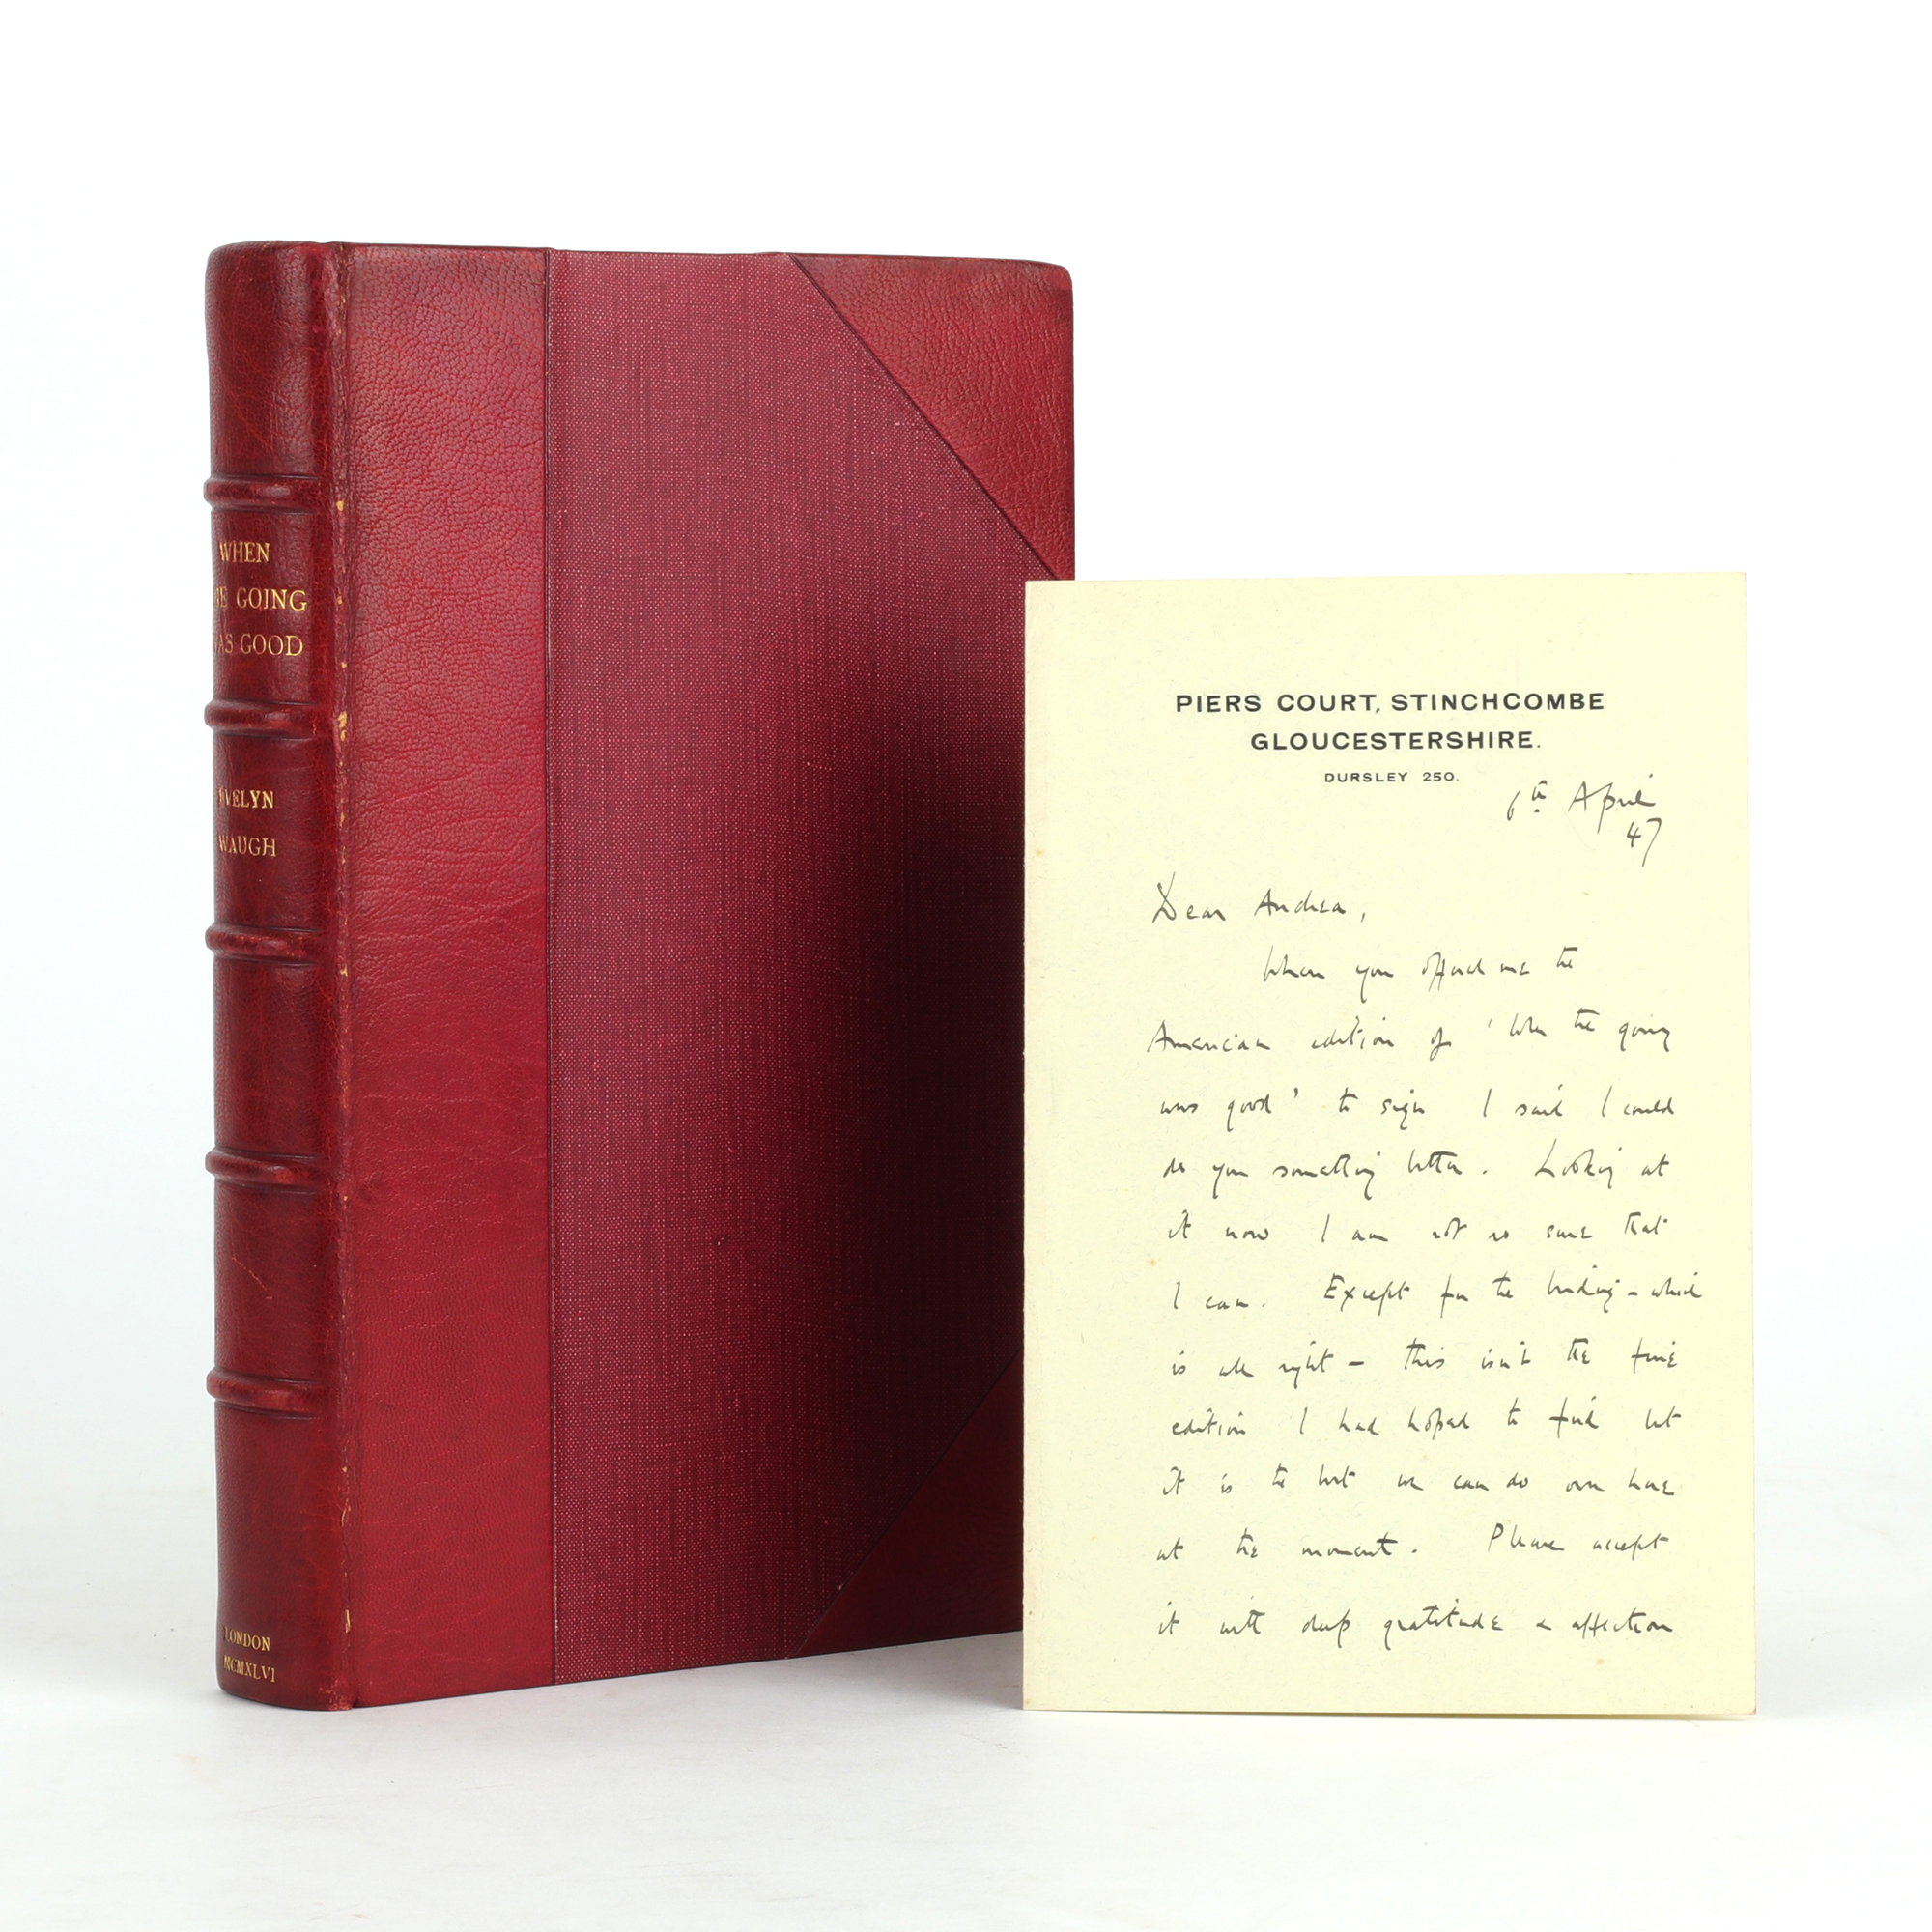 WHEN
HE GOING
AS GOOD
EVELYN
WAUGH
LONDON
MCMXLVI
PIERS COURT, STINCHCOMBE
GLOUCESTERSHIRE.
DURSLEY 250.
6th April
47
Dear Andrea,
When you offered me the
American edition of 'When the going
was good' to sign I said I could
do you something better. Looking at
it now I am not so sure that
I can. Except for the binding – which
is all right – this isn't the fine
edition I had hoped to find but
it is the best we can do over here
at the moment. Please accept
it with deep gratitude & affection